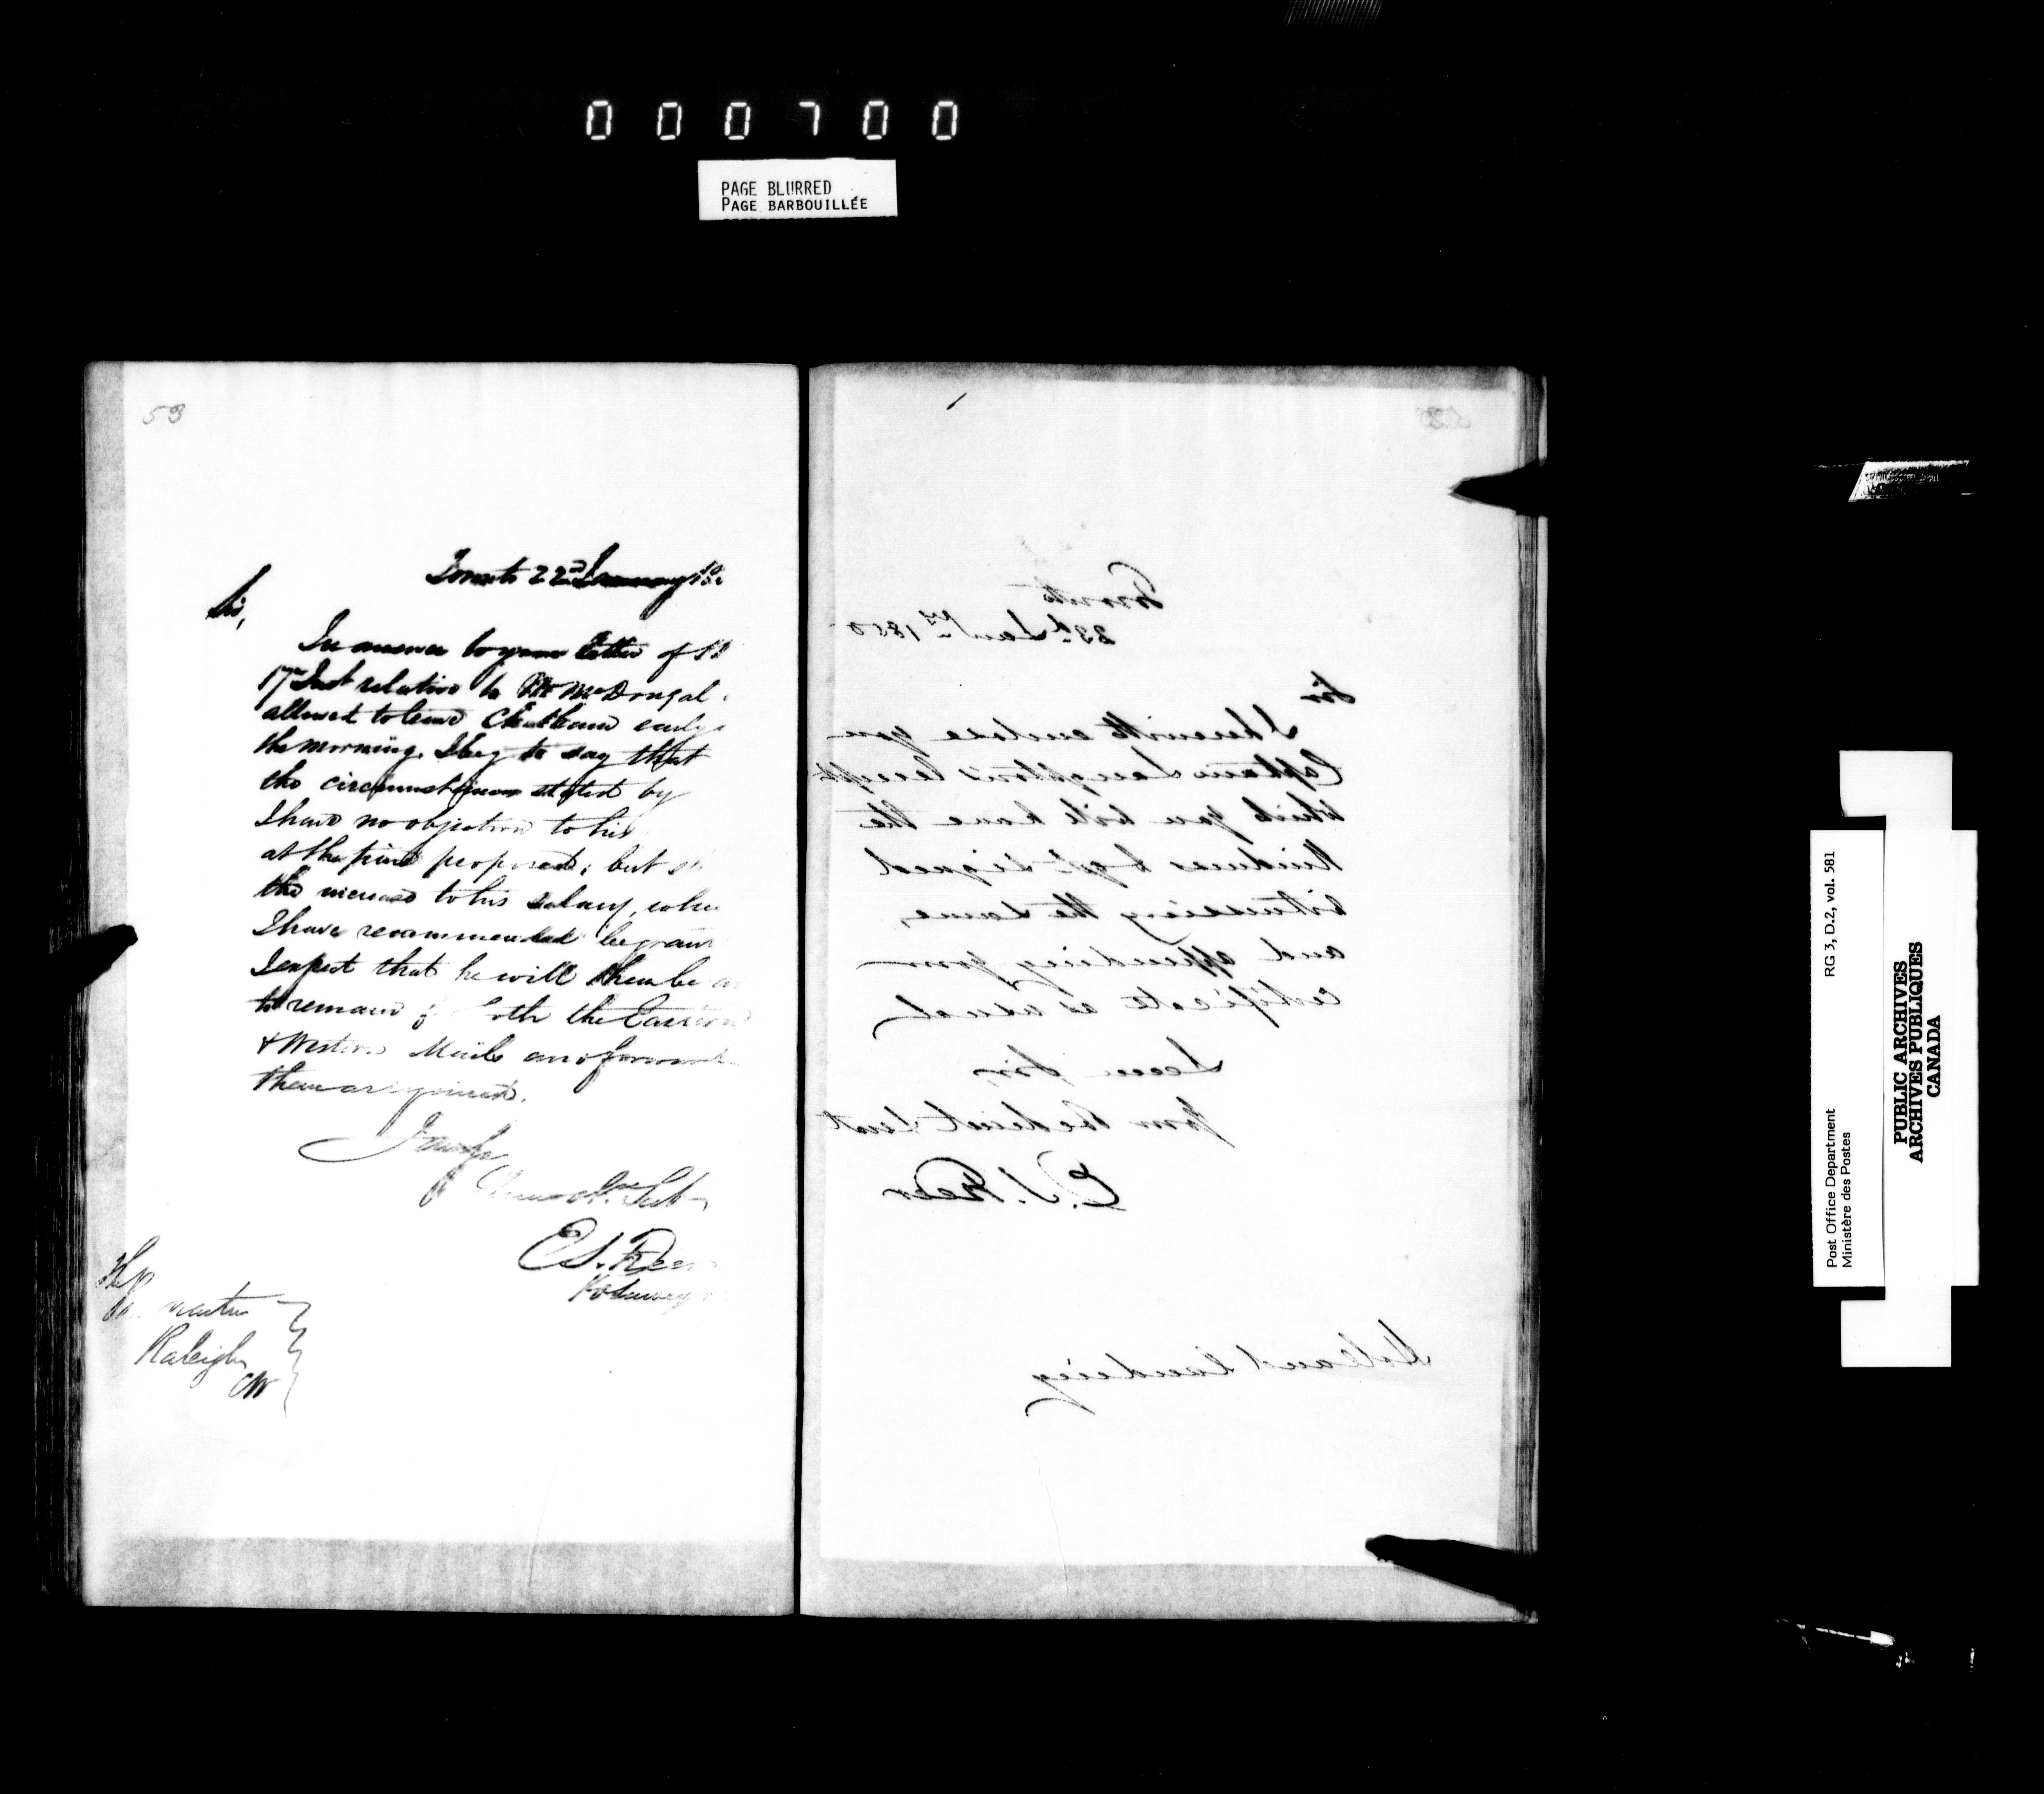 000700
PAGE BLURRED
PAGE BARBOUILLÉE
53
Toronto 22nd January 185
Sir,
In answer to your letter of th
17th Inst relative to Mr McDongal
allowed to leave Chatham early
the morning, I beg to say that
the circumstances stated by
I have no objection to his
at the time proposed; but s
the increase to his salary, whic
I have recommended be gran
I expect that he will then be
to remain both the Eastern
& Western Mails
them
I am Sir
Your Obt. Sert
E.S. Freer
Raleigh
CW
Toronto
23d Jany 1850
Sir
I herewith enclose you
Captain Laughton's
which you will have the
kindness to get signed
witnessing the same,
and appending your
certificate as usual,
I am Sir,
Your Obedient Servt
E.S. Freer
Holland Landing
Post Office Department
Ministère des Postes
RG 3, D.2, vol. 581
PUBLIC ARCHIVES
ARCHIVES PUBLIQUES
CANADA